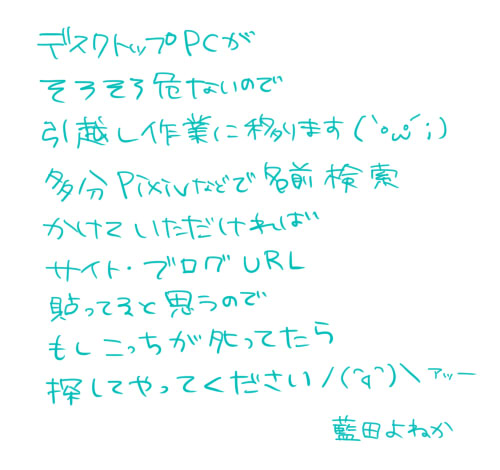 デスクトップPCが
そろそろ危ないので
引越し作業に移ります(`・ω・´;)
多分Pixivなどで名前検索
かけていただければ
サイト・ブログURL
貼ってると思うので
もしこっちが死ってたら
探してやってください/(^q^)\ アッー
藍田よねか